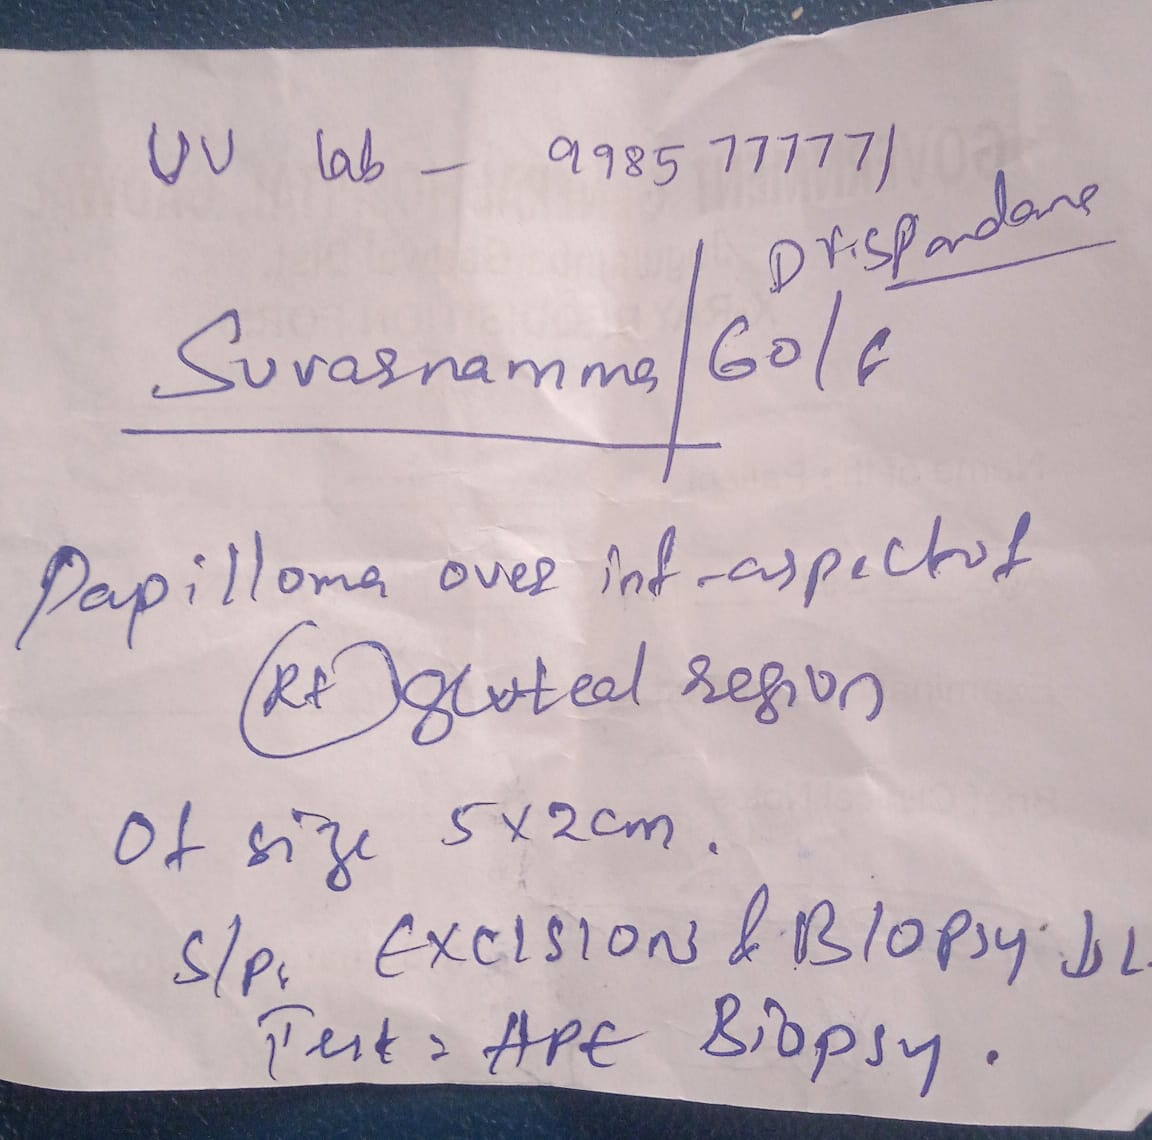 UV lab - 9985 777771
Dr.Spandana
Suvarnamma/60/F
Papilloma over inf-aspect of
(Rt) gluteal region
Of size 5x2cm.
S/P: Excision & Biopsy
Test: HPE Biopsy.